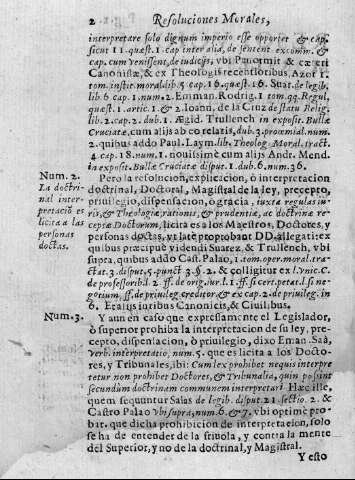 2 Resoluciones Morales,
interpretare solo dignum imperio esse opportet & cap.
sicut 11. quæst. 1. cap inter alia, de sentent excomm. &
cap. cum venissent, de iudicijs, vbi Panormit & cæteri
Canonistæ, & ex Theologis recentioribus, Azor 1.
tom. instit. moral. lib. 5 cap. 16. quæst. 16. Suar. de legib.
lib. 6 cap. 1. num. 2. Emman. Rodrig. 1 tom. qq. Regul,
quæst. 1. artic. 1 & 2. Ioann. de la Cruz de statu Relig.
lib. 2. cap. 2. dub. 1. Ægid. Trullench in exposit. Bullæ
Cruciatæ, cum alijs ab eo relatis, dub. 3. proximal. num.
2. quibus addo Paul. Laym. lib. Theolog. Moral. tract.
4. cap. 18. num. 1. nouissimè cum alijs Andr. Mend.
in exposit. Bullæ Cruciatæ disput. 1. dub. 6. num. 36.
Num. 2.
La doctri-
nal inter-
pretaciō es
licita a las
personas
doctas.
Pero la resolucion, explicacion, ò interpretacion
doctrinal, Doctoral, Magistral de la ley, precepto,
priuilegio, dispensacion, ò gracia, iuxta regulas iu-
ris, & Theologiæ rationis, & prudentiæ, ac doctrinæ re-
ceptæ Doctorum, licita es a los Maestros, Doctores, y
personas doctas, vt latè probant DD. allegati ex
quibus præcipuè videndi Suarez, & Trullench, vbi
supra, quibus addo Cast. Palao, 1. tom. oper. moral. tra-
ctat. 3. disput. 5. punct 3. §. 2. & colligitur ex l. vnic. C.
de professorib. l. 2 ff. de orig. iur. l. 1. ff. si cert. petat. l. si ne-
gotium, ff. de priuileg. creditor & ex cap. 2. de priuileg. in
6. Et alijs iuribus Canonicis, & Ciuilibus.
Num. 3.
Y aun en caso que expressamente el Legislador,
ò superior prohiba la interpretacion de su ley, pre-
cepto, dispensacion, ò priuilegio, dixo Eman. Saà,
verb. interpretatio, num. 5. que es licita a los Docto-
res, y Tribunales, ibi: Cum lex prohibet nequis interpre
tetur non prohibet Doctores, & Tribunalia, quin possint
secundùm doctrinam communem interpretari Hæc ille,
quem sequuntur Salas de legib. disput. 21. sectio. 2. &
Castro Palao vbi supra, num. 6. & 7. vbi optimè pro-
bit. que dicha prohibicion de interpretacion, solo
se ha de entender de la friuola, y contra la mente
del Superior, y no de la doctrinal, y Magistral.
Y esto